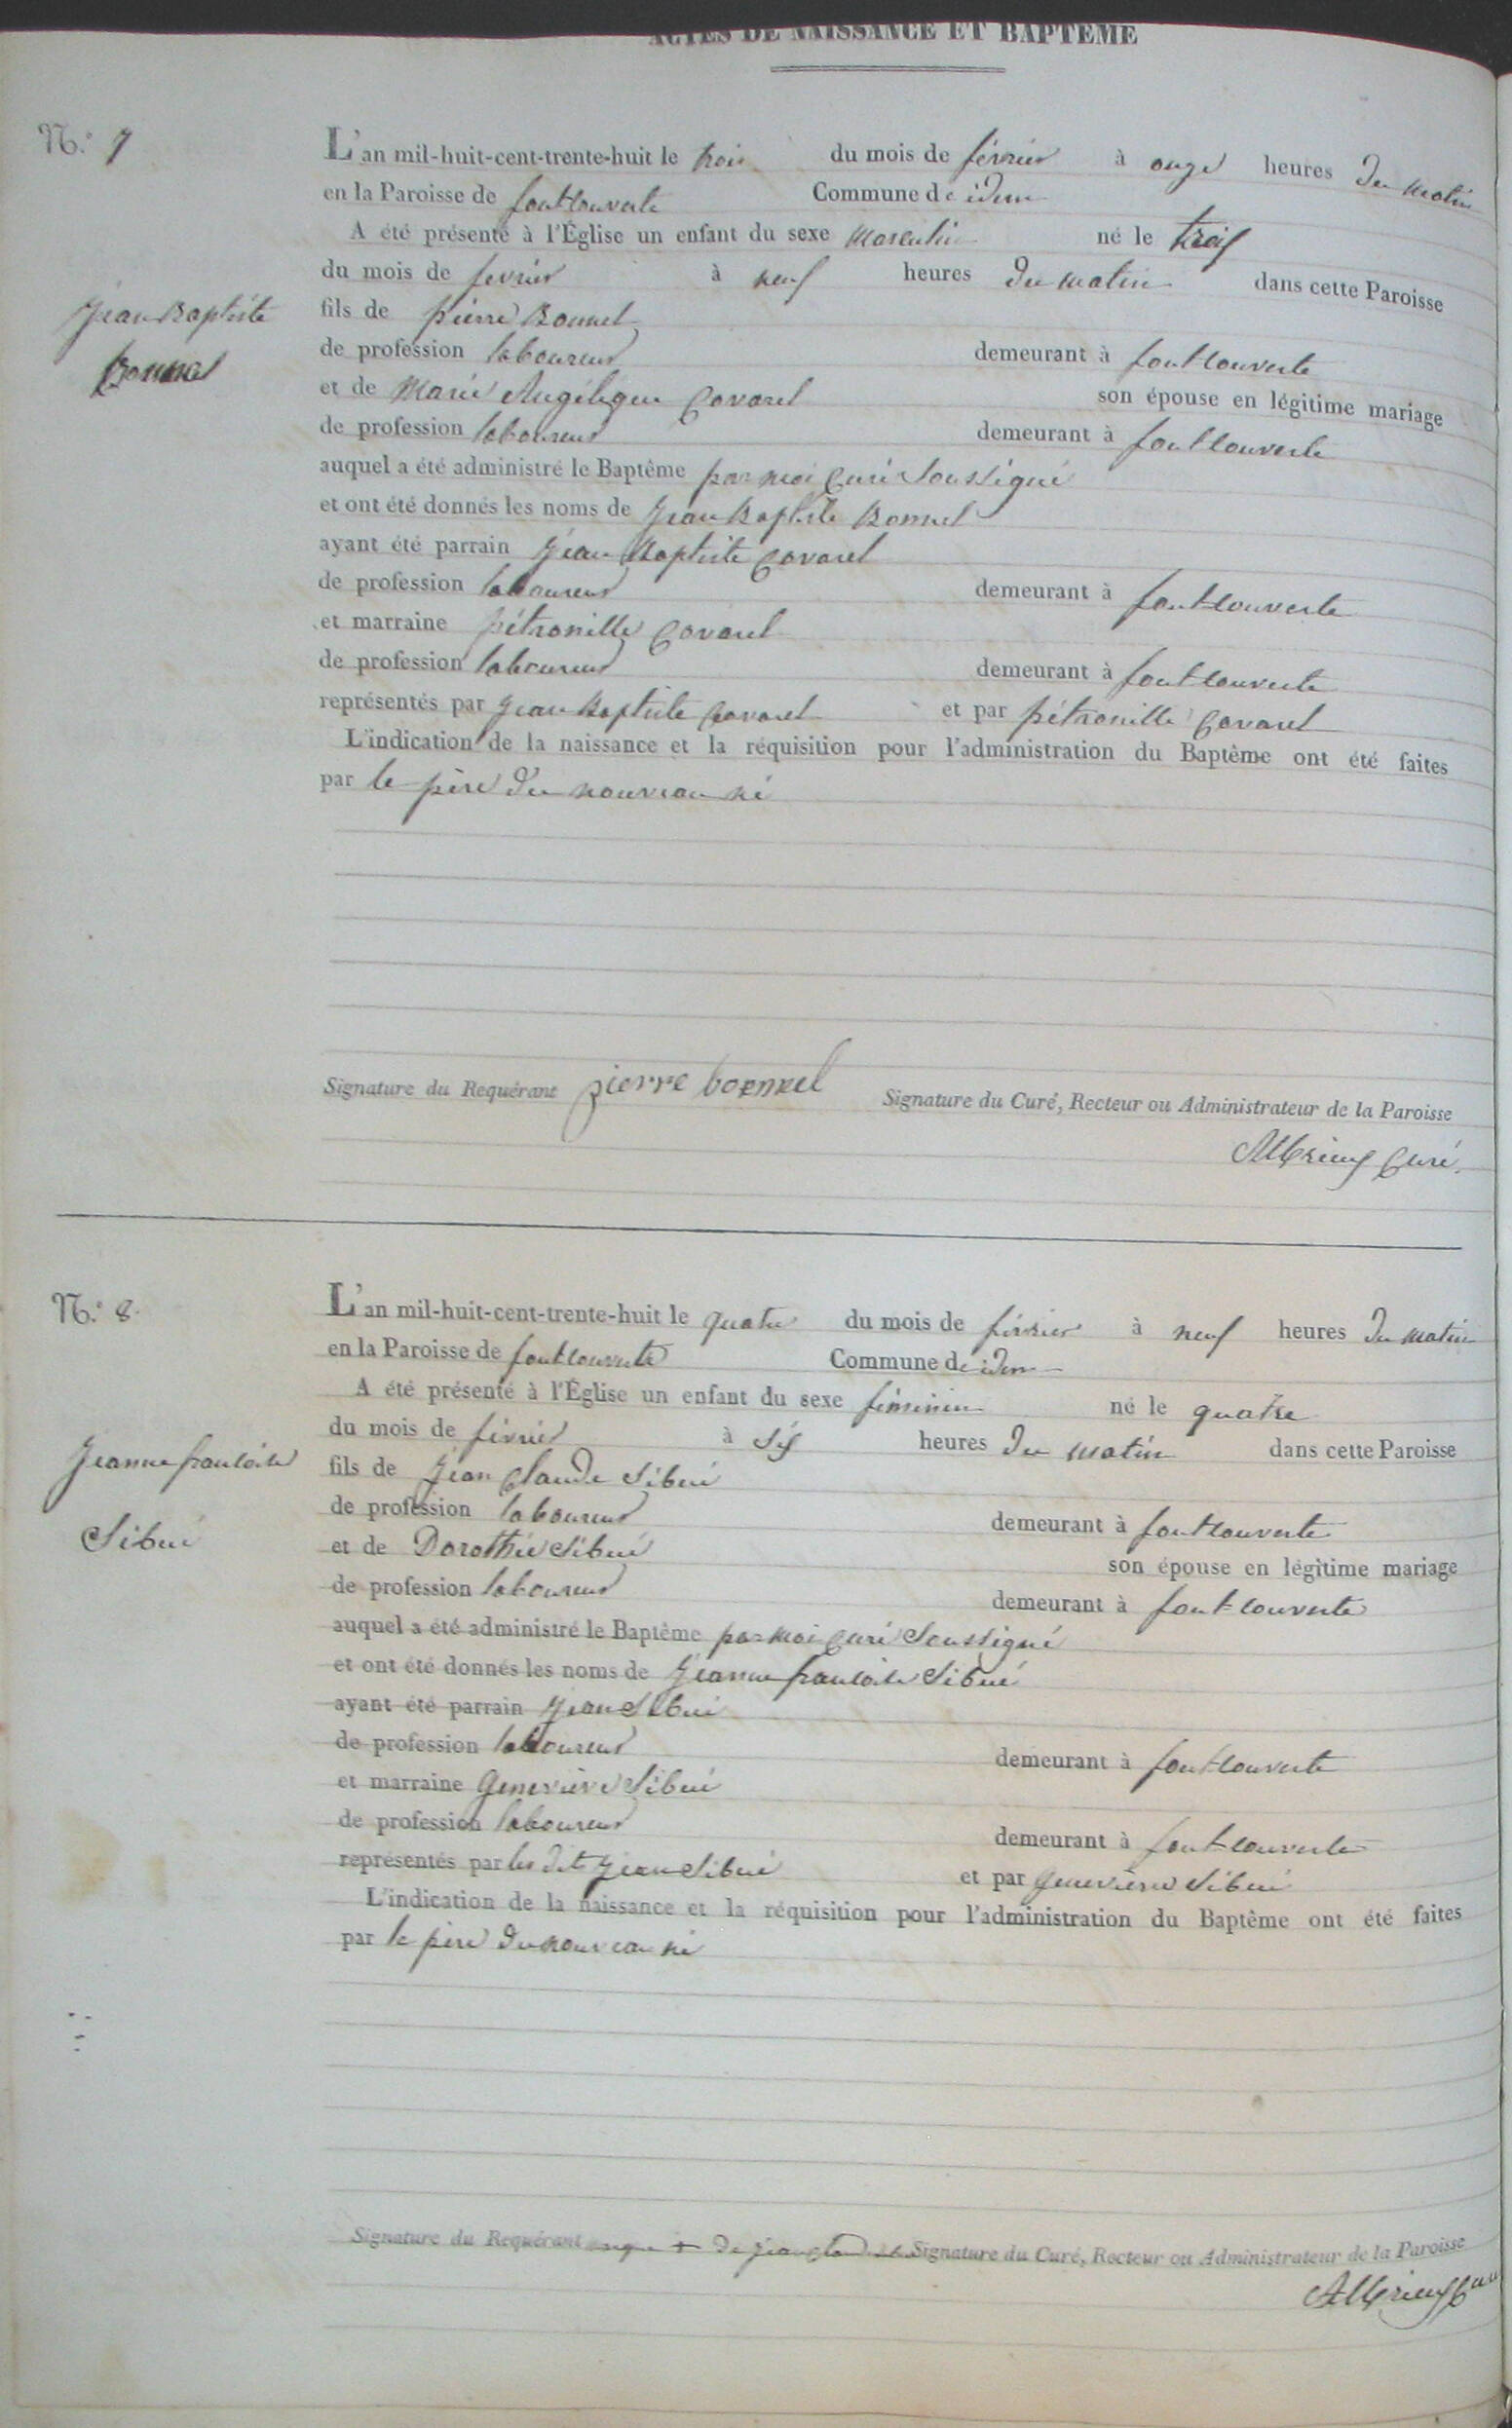 ACTES DE NAISSANCE ET BAPTÊME
N.° 7
L'an mil-huit-cent-trente-huit le trois du mois de février à onze heures du matin
en la Paroisse de fontcouverte Commune de idem
A été présenté à l'Église un enfant du sexe masculin né le trois
du mois de fevrier à neuf heures du matin dans cette Paroisse
Jean Baptiste
Bonnel
fils de pierre Bonnel
de profession laboureur demeurant à fontcouverte
et de Marie Angélique Covarel son épouse en légitime mariage
de profession laboureur demeurant à fontcouverte
auquel a été administré le Baptême par moi curé soussigné
et ont été donnés les noms de Jean Baptiste Bonnel
ayant été parrain Jean Baptiste Covarel
de profession laboureur demeurant à fontcouverte
et marraine pétronille Covarel
de profession laboureur demeurant à fontcouverte
représentés par Jean Baptiste Covarel et par pétronille Covarel
L'indication de la naissance et la réquisition pour l'administration du Baptême ont été faites
par le père du nouveau né
Signature du Requérant pierre bonnel Signature du Curé, Recteur ou Administrateur de la Paroisse
Curé
N.° 8
L'an mil-huit-cent-trente-huit le quatre du mois de février à neuf heures du matin
en la Paroisse de fontcouverte Commune de idem
A été présenté à l'Église un enfant du sexe féminin né le quatre
du mois de février à six heures du matin dans cette Paroisse
Jeanne francoise
Sibué
fils de Jean Claude Sibué
de profession laboureur demeurant à fontcouverte
et de Dorothée Sibué son épouse en légitime mariage
de profession laboureur demeurant à fontcouverte
auquel a été administré le Baptême par moi curé soussigné
et ont été donnés les noms de Jeanne francoise Sibué
ayant été parrain Jean Sibué
de profession laboureur demeurant à fontcouverte
et marraine Geneviève Sibué
de profession laboureur demeurant à fontcouverte
représentés par les dits Jean Sibué et par Geneviève Sibué
L'indication de la naissance et la réquisition pour l'administration du Baptême ont été faites
par le père du nouveau né
Signature du Requérant marque + de jean claude Signature du Curé, Recteur ou Administrateur de la Paroisse